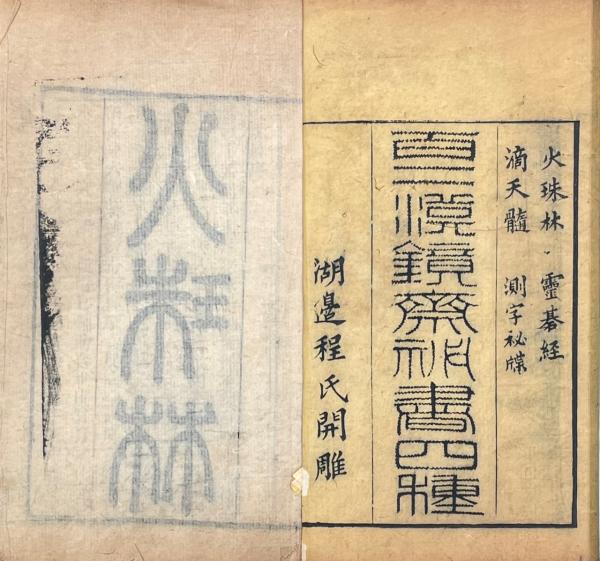 火珠林 靈碁經
滴天髓 測字祕牒
百二漢鏡齋祕書四種
湖邊程氏開雕
火珠林